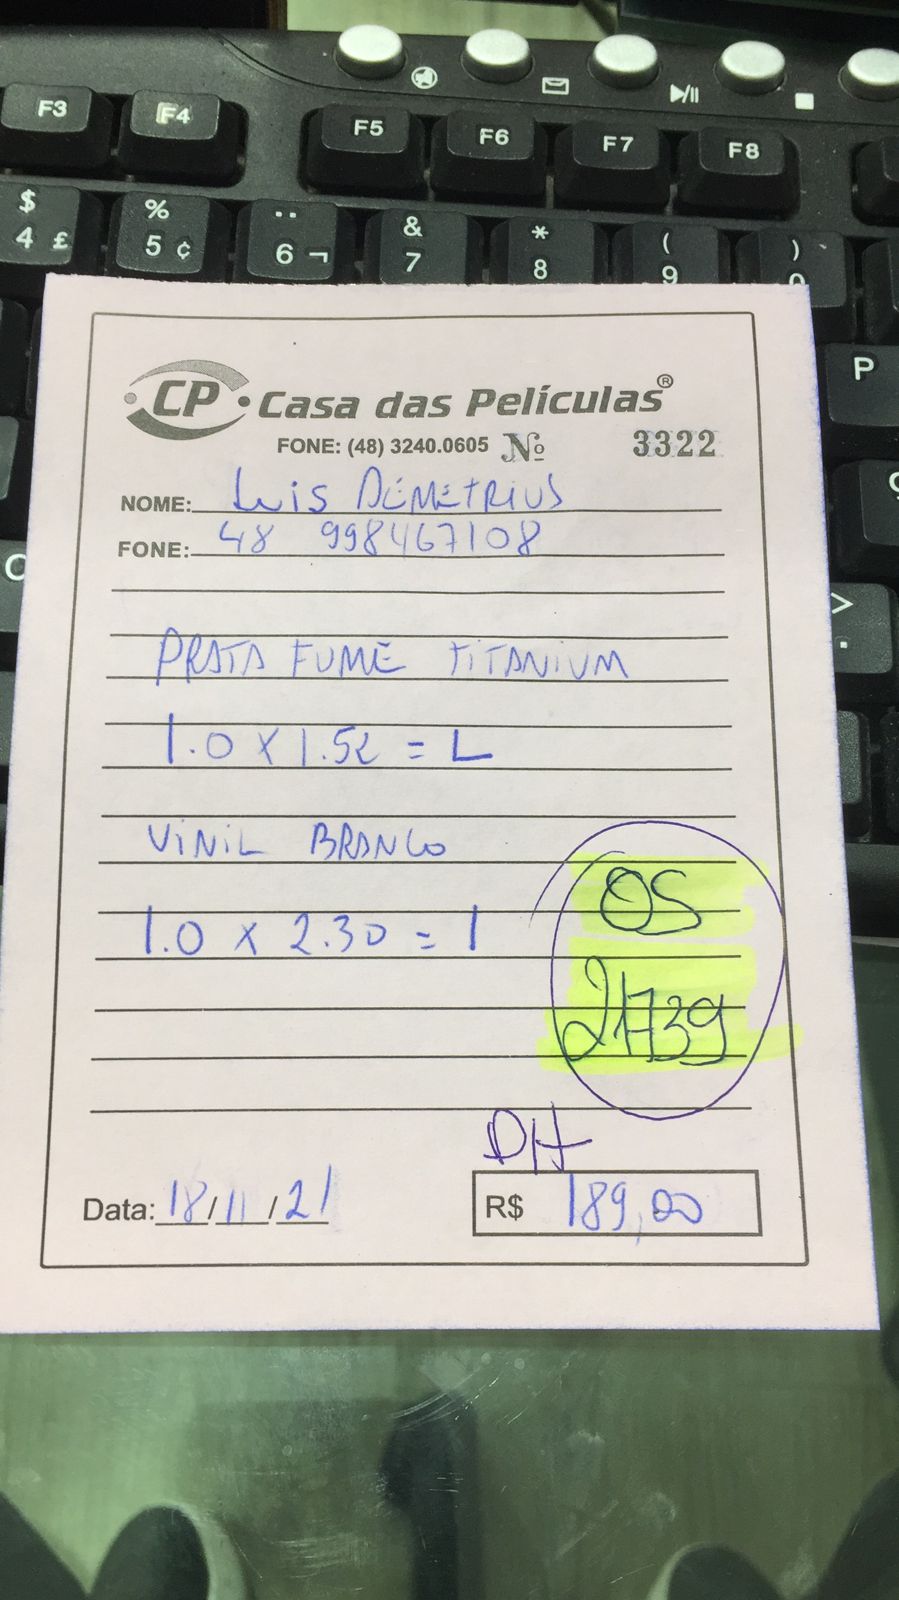 F3 F4 F5 F6 F7 F8
$ % ¨ & * ( )
4 £ 5 ¢ 6 ¬ 7 8 9 0
P
>
.
CP Casa das Películas®
FONE: (48) 3240.0605 Nº 3322
NOME: Luis DEMETRIUS
FONE: 48 998467108
PRATA FUME TITANIUM
1.0 X 1.52 = L
VINIL BRANCO
1.0 X 2.30 = 1
OS
21739
DH
Data: 18/11/21 R$ 189,00